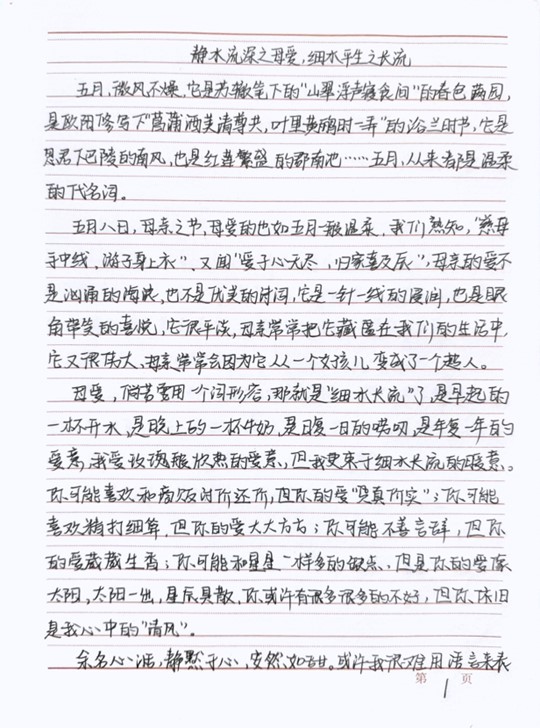 静水流深之母爱,细水平生之长流
五月,微风不燥,它是苏辙笔下的"山翠浮声寝食间"的春色满园,
是欧阳修写下"菖蒲酒美清尊共,叶里黄鹂时一弄"的浴兰时节,它是
思君下巴陵的南风,也是红莲繁盛的郡南池……五月,从来都是温柔
的代名词。
五月八日,母亲之节,母爱的也如五月一般温柔,我们熟知,"慈母
手中线,游子身上衣",又闻"爱子心无尽,归家喜及辰",母亲的爱不
是汹涌的海浪,也不是优美的诗词,它是一针一线的浸润,也是眼
角带笑的喜悦,它很平淡,母亲常常把它藏匿在我们的生活中,
它又很伟大,母亲常常会因为它从一个女孩儿变成了一个超人。
母爱,倘若要用一个词形容,那就是"细水长流"了,是早起的
一杯开水,是晚上的一杯牛奶,是日复一日的唠叨,是年复一年的
爱意,我爱玫瑰般炽热的爱意,但我更乐于细水长流的暖意。
你可能喜欢和商贩讨价还价,但你的爱"货真价实";你可能
喜欢精打细算,但你的爱大大方方;你可能不善言辞,但你
的爱葳蕤生香;你可能和星星一样多的缺点,但是你的爱像
太阳,太阳一出,星辰具散,你或许有很多很多的不好,但你依旧
是我心中的"清风"。
余名心语,静默于心,安然如甜。或许我很难用语言来表
第 1 页